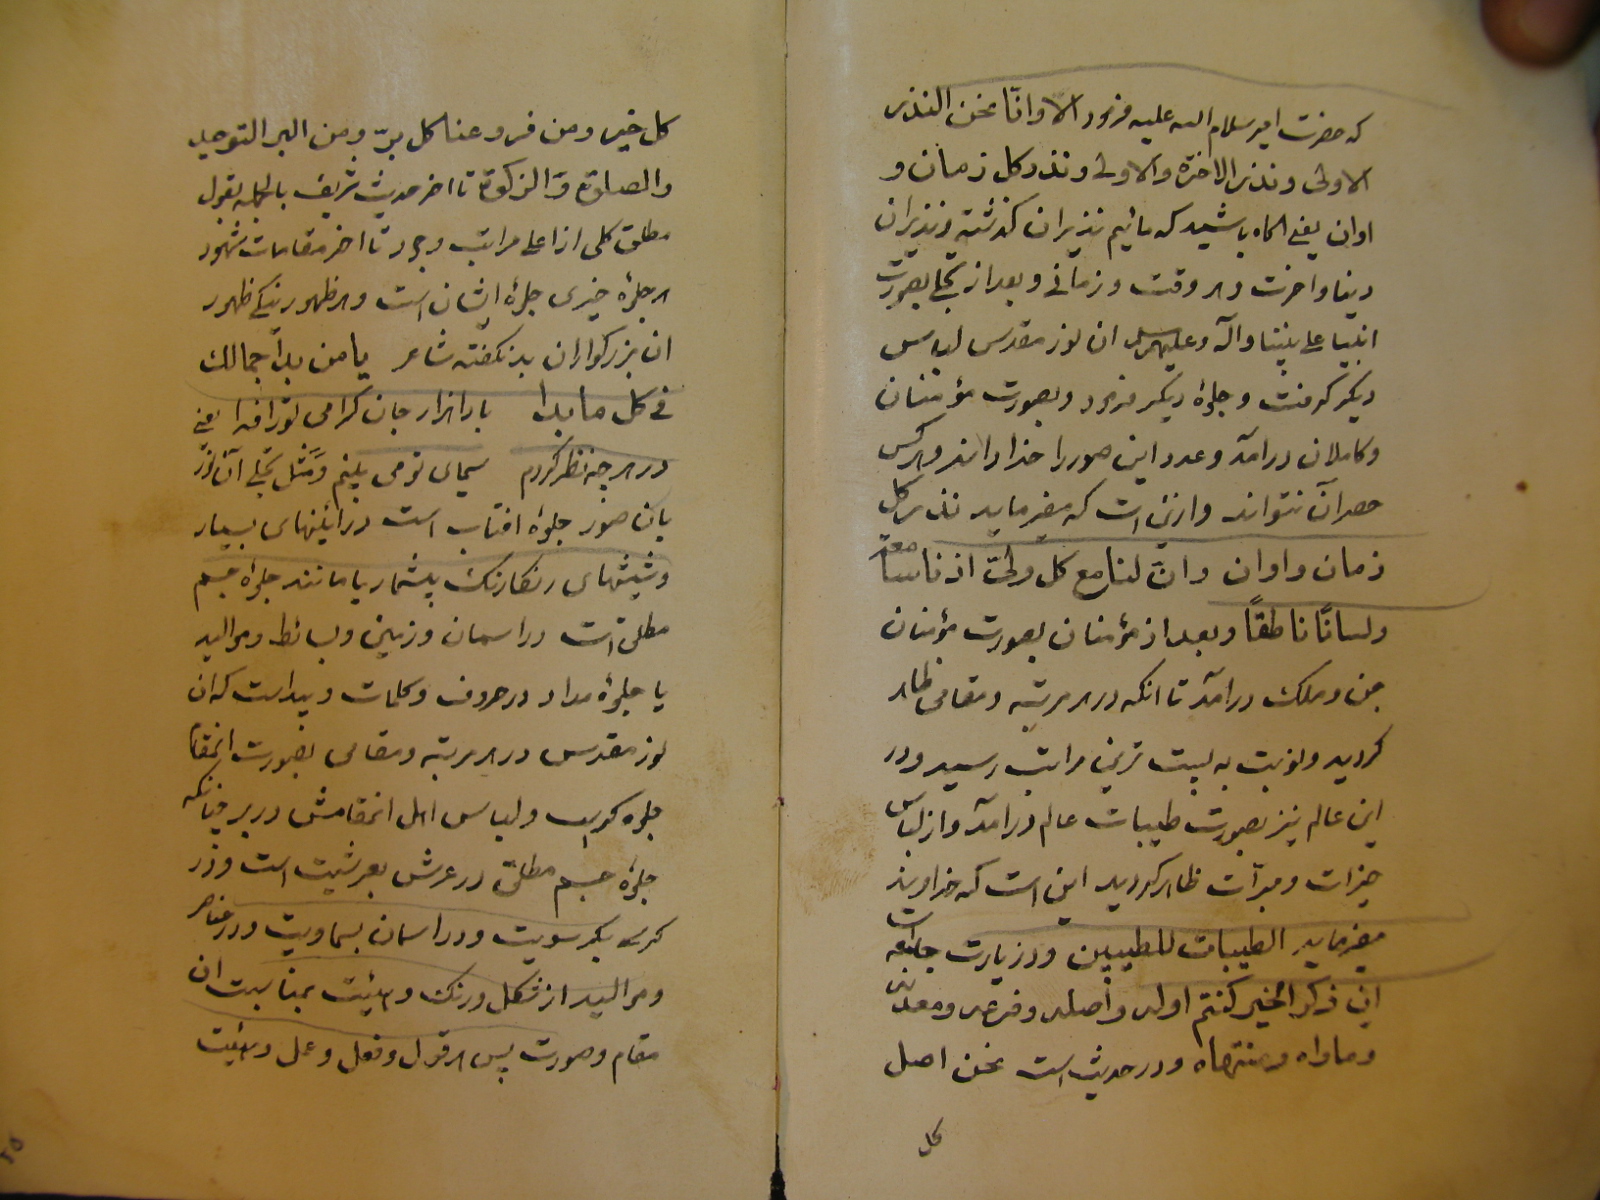 که حضرت امیر سلام الله علیه فرمود الا وانّا نحن النذر
الاولی ونذر الاخرة والاولی ونذر کل زمان و
اوان یعنی اکاه باشید که مائیم نذیران کذشته ونذیران
دنیا واخرت وهر وقت وزمانی وبعد از تجلی بصورت
انبیا علی نبینا وآله وعلیهم السلم ان نور مقدس لباس
دیکر کرفت وجلوهٔ دیکر فرمود وبصورت مؤمنان
وکاملان درآمد وعدد این صور را خدا داند وهرکس
حصر آن نتواند وازین است که میفرماید نذر کل
زمان واوان وانّ لنا مع کل ولیّ اذنا سامعة
ولسانًا ناطقًا وبعد از مؤمنان بصورت مؤمنان
جن وملک درآمد تا انکه در هر مرتبه ومقامی ظاهر
کردید ونوبت به پست ترین مراتب رسید ودر
این عالم نیز بصورت طیبات عالم درآمد واز لباس
خیرات ومبرآت ظاهر کردید این است که خداوند
میفرماید الطیبات للطیبین ودر زیارت جامعه است
ان ذکر الخیر کنتم اوله واصله وفرعه ومعدنه
وماواه ومنتهاه ودر حدیث است نحن اصل
کل
کل خیر ومن فروعنا کل برّ ومن البر التوحید
والصلوة والزکوة تا اخر حدیث شریف بالجمله بقول
مطلق کلی از اعلی مراتب وجود تا اخر مقامات شهود
هر جلوهٔ خیری جلوهٔ ایشان است وهر ظهور نیکی ظهور
ان بزرکواران بد نکفته شاعر یا من بدا جمالک
فی کل ما بدا بادا هزار جان کرامی تو را فدا یعنی
در هر چه نظر کردم سیمای تو می بینم ومَثَل تجلی آن نور
بان صور جلوه افتاب است در ائینهای بسیار
وشیشهای رنکارنک بیشمار یا مانند جلوهٔ جسم
مطلق است در اسمان وزمین وبسائط وموالید
یا جلوهٔ مداد در حروف وکلمات وپیداست که ان
نور مقدس در هر مرتبه ومقامی بصورت انمقام
جلوه کر است ولباس اهل انمقامش در بر چنانکه
جلوهٔ جسم مطلق در عرش بعرشیت است ودر
کرسی بکرسویت ودر اسمان بسماویت ودر عناصر
وموالید از شکل ورنک وهیئت بمناسبت ان
مقام وصورت پس هر قول وفعل وعمل وهیئت
۲۵